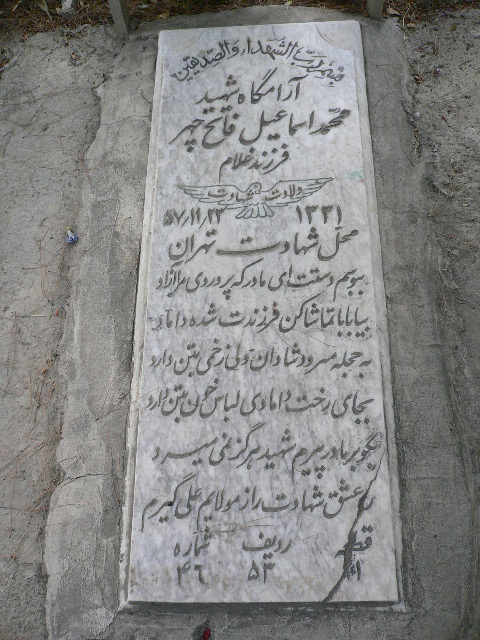 بسم رب الشهداء والصدیقین
آرامگاه شهید
محمد اسماعیل فاتح چهر
فرزند غلام
ولادت شهادت
۱۳۳۱ ۵۷/۱۱/۲۲
محل شهادت تهران
ببوسم دستت ای مادر که پروردی مرا آزاد
بیا بابا تماشا کن فرزندت شده داماد
به حجله میرود شادان ولی زخمی بتن دارد
بجای رخت دامادی لباس خون بتن دارد
بگو بر مادر پیرم شهید هرگز نمی میرد
ره عشق شهادت را ز مولایم علی گیرم
قطعه ردیف شماره
۵۳ ۴۶